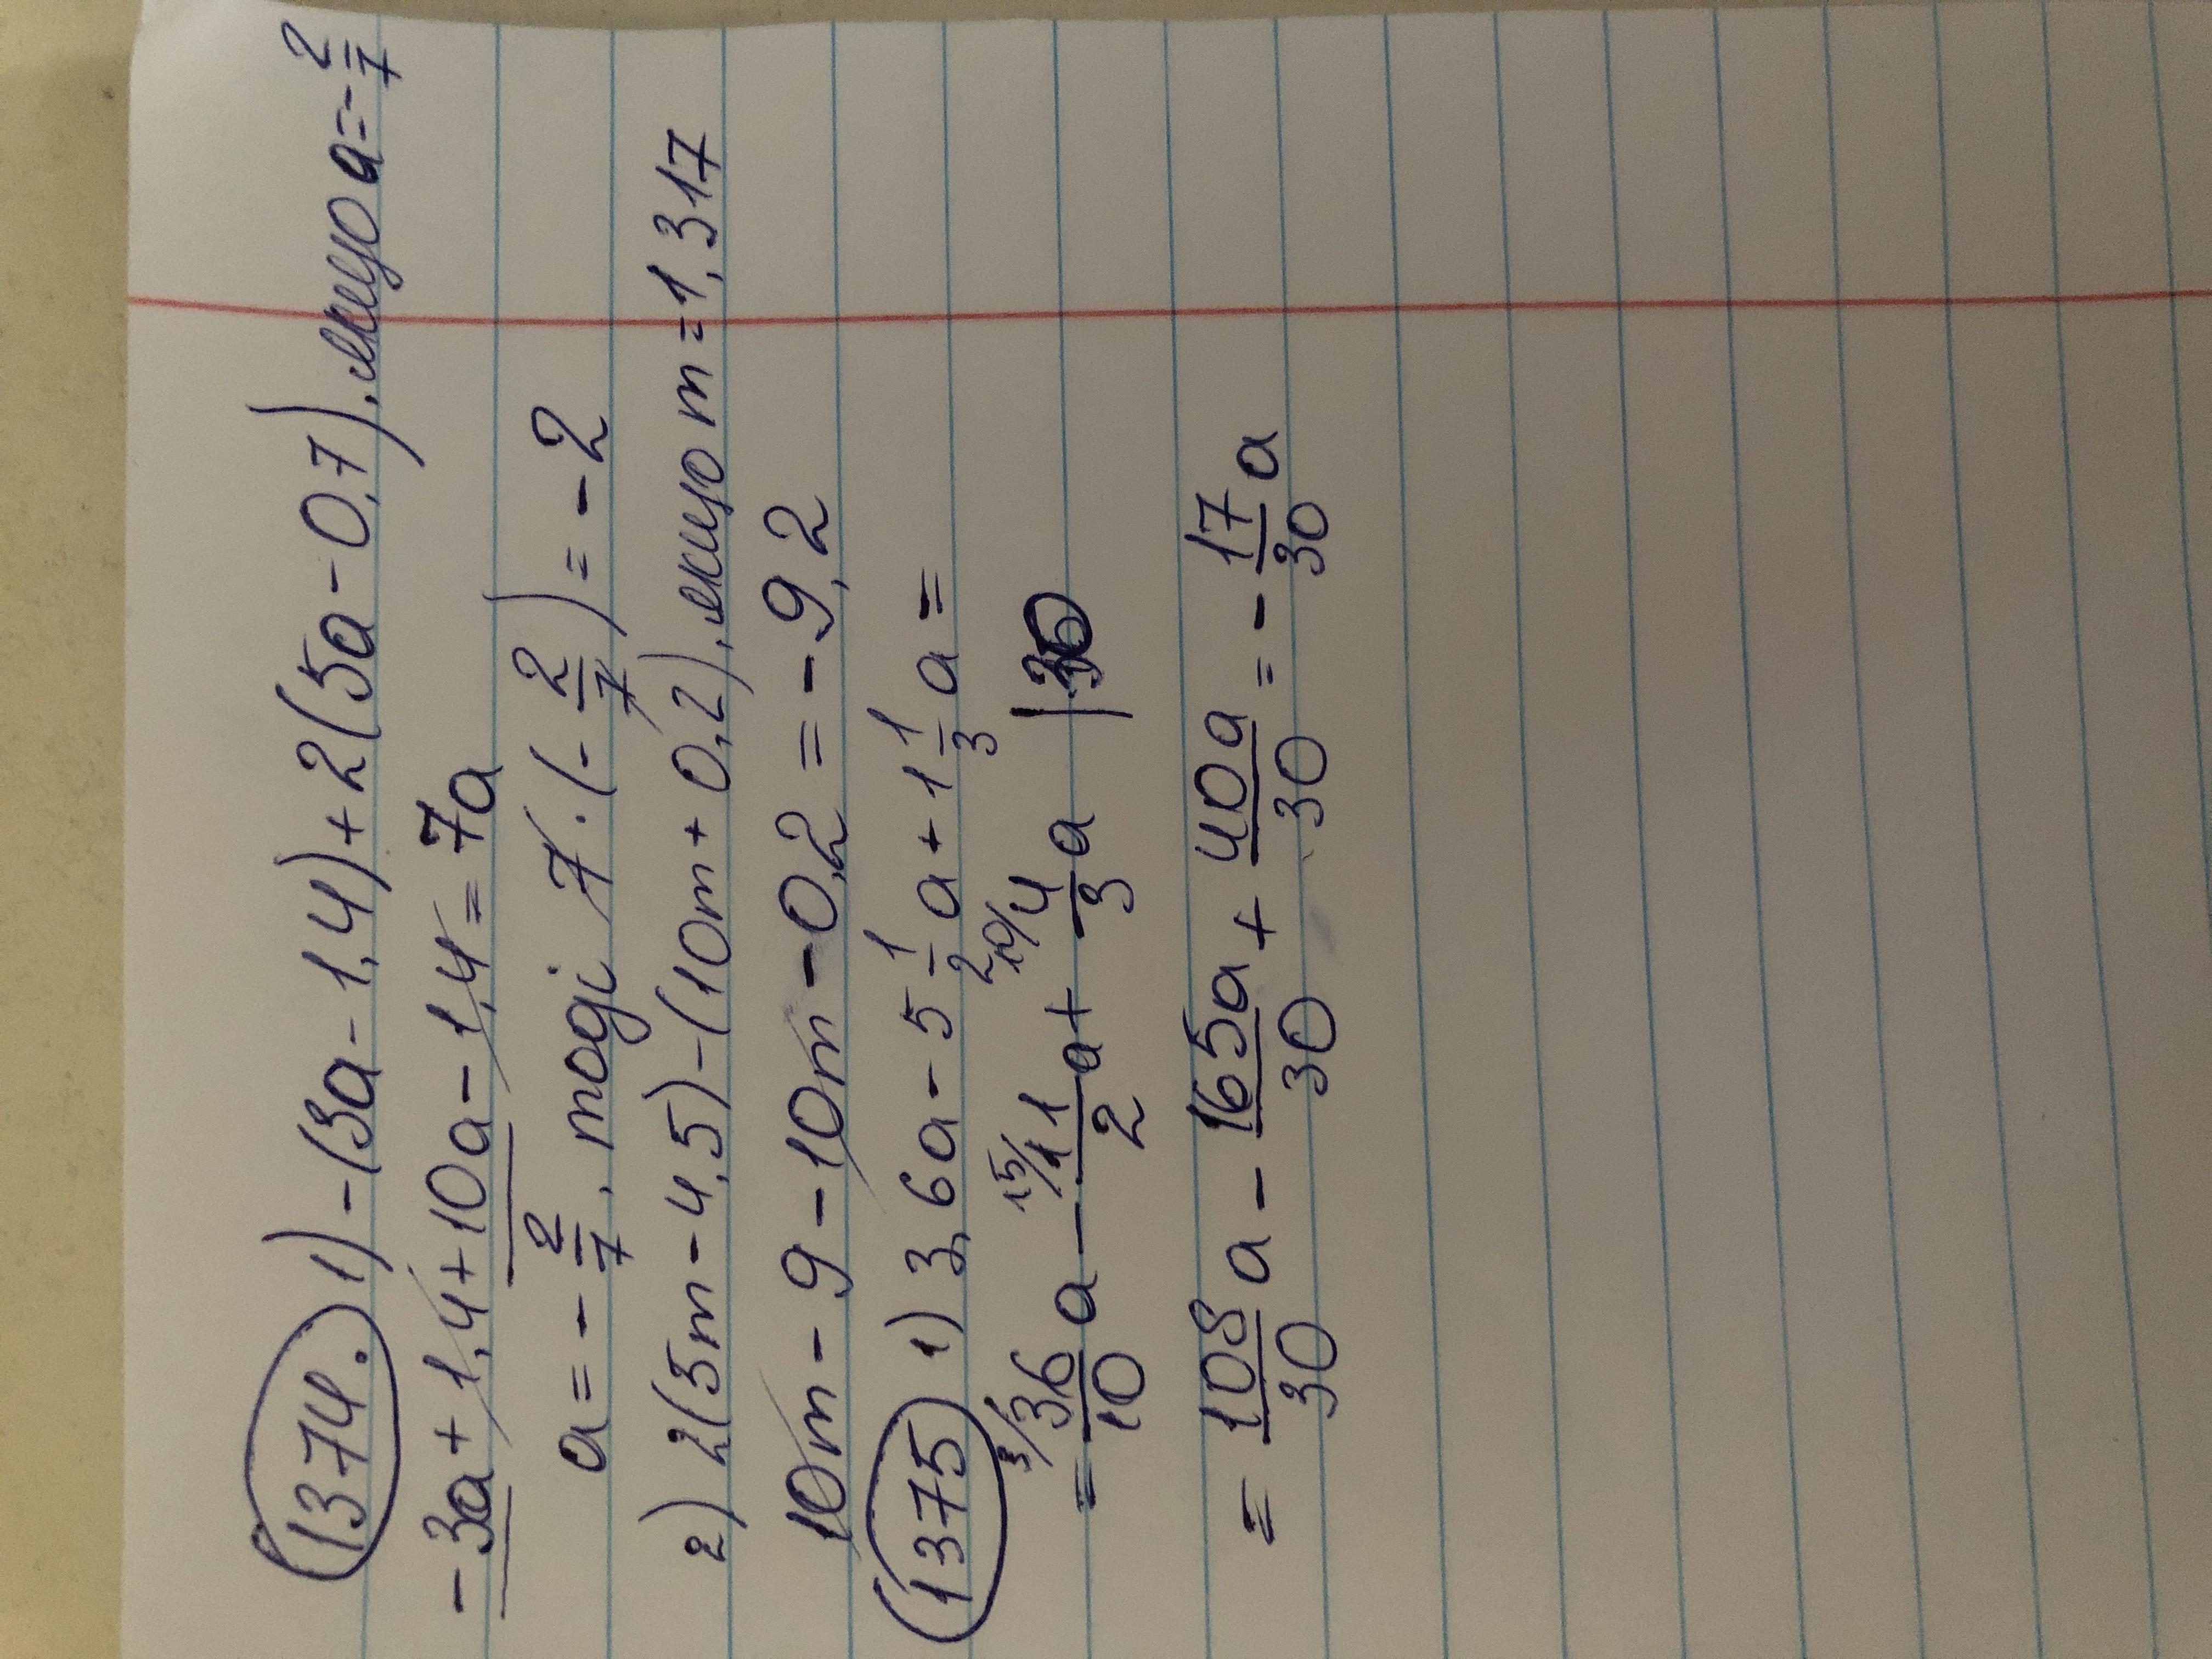 1374. 1) -(3a - 1,4) + 2(5a - 0,7), якщо a = -2/7
-3a + 1,4 + 10a - 1,4 = 7a
a = -2/7, тоді 7 · (-2/7) = -2
2) 2(5m - 4,5) - (10m + 0,2), якщо m = 1,317
10m - 9 - 10m - 0,2 = -9,2
1375 1) 3,6a - 5 1/2 a + 1 1/3 a =
= 3/ 36/10 a - 15/ 11/2 a + 10/ 4/3 a | 30
= 108/30 a - 165a/30 + 40a/30 = - 17/30 a